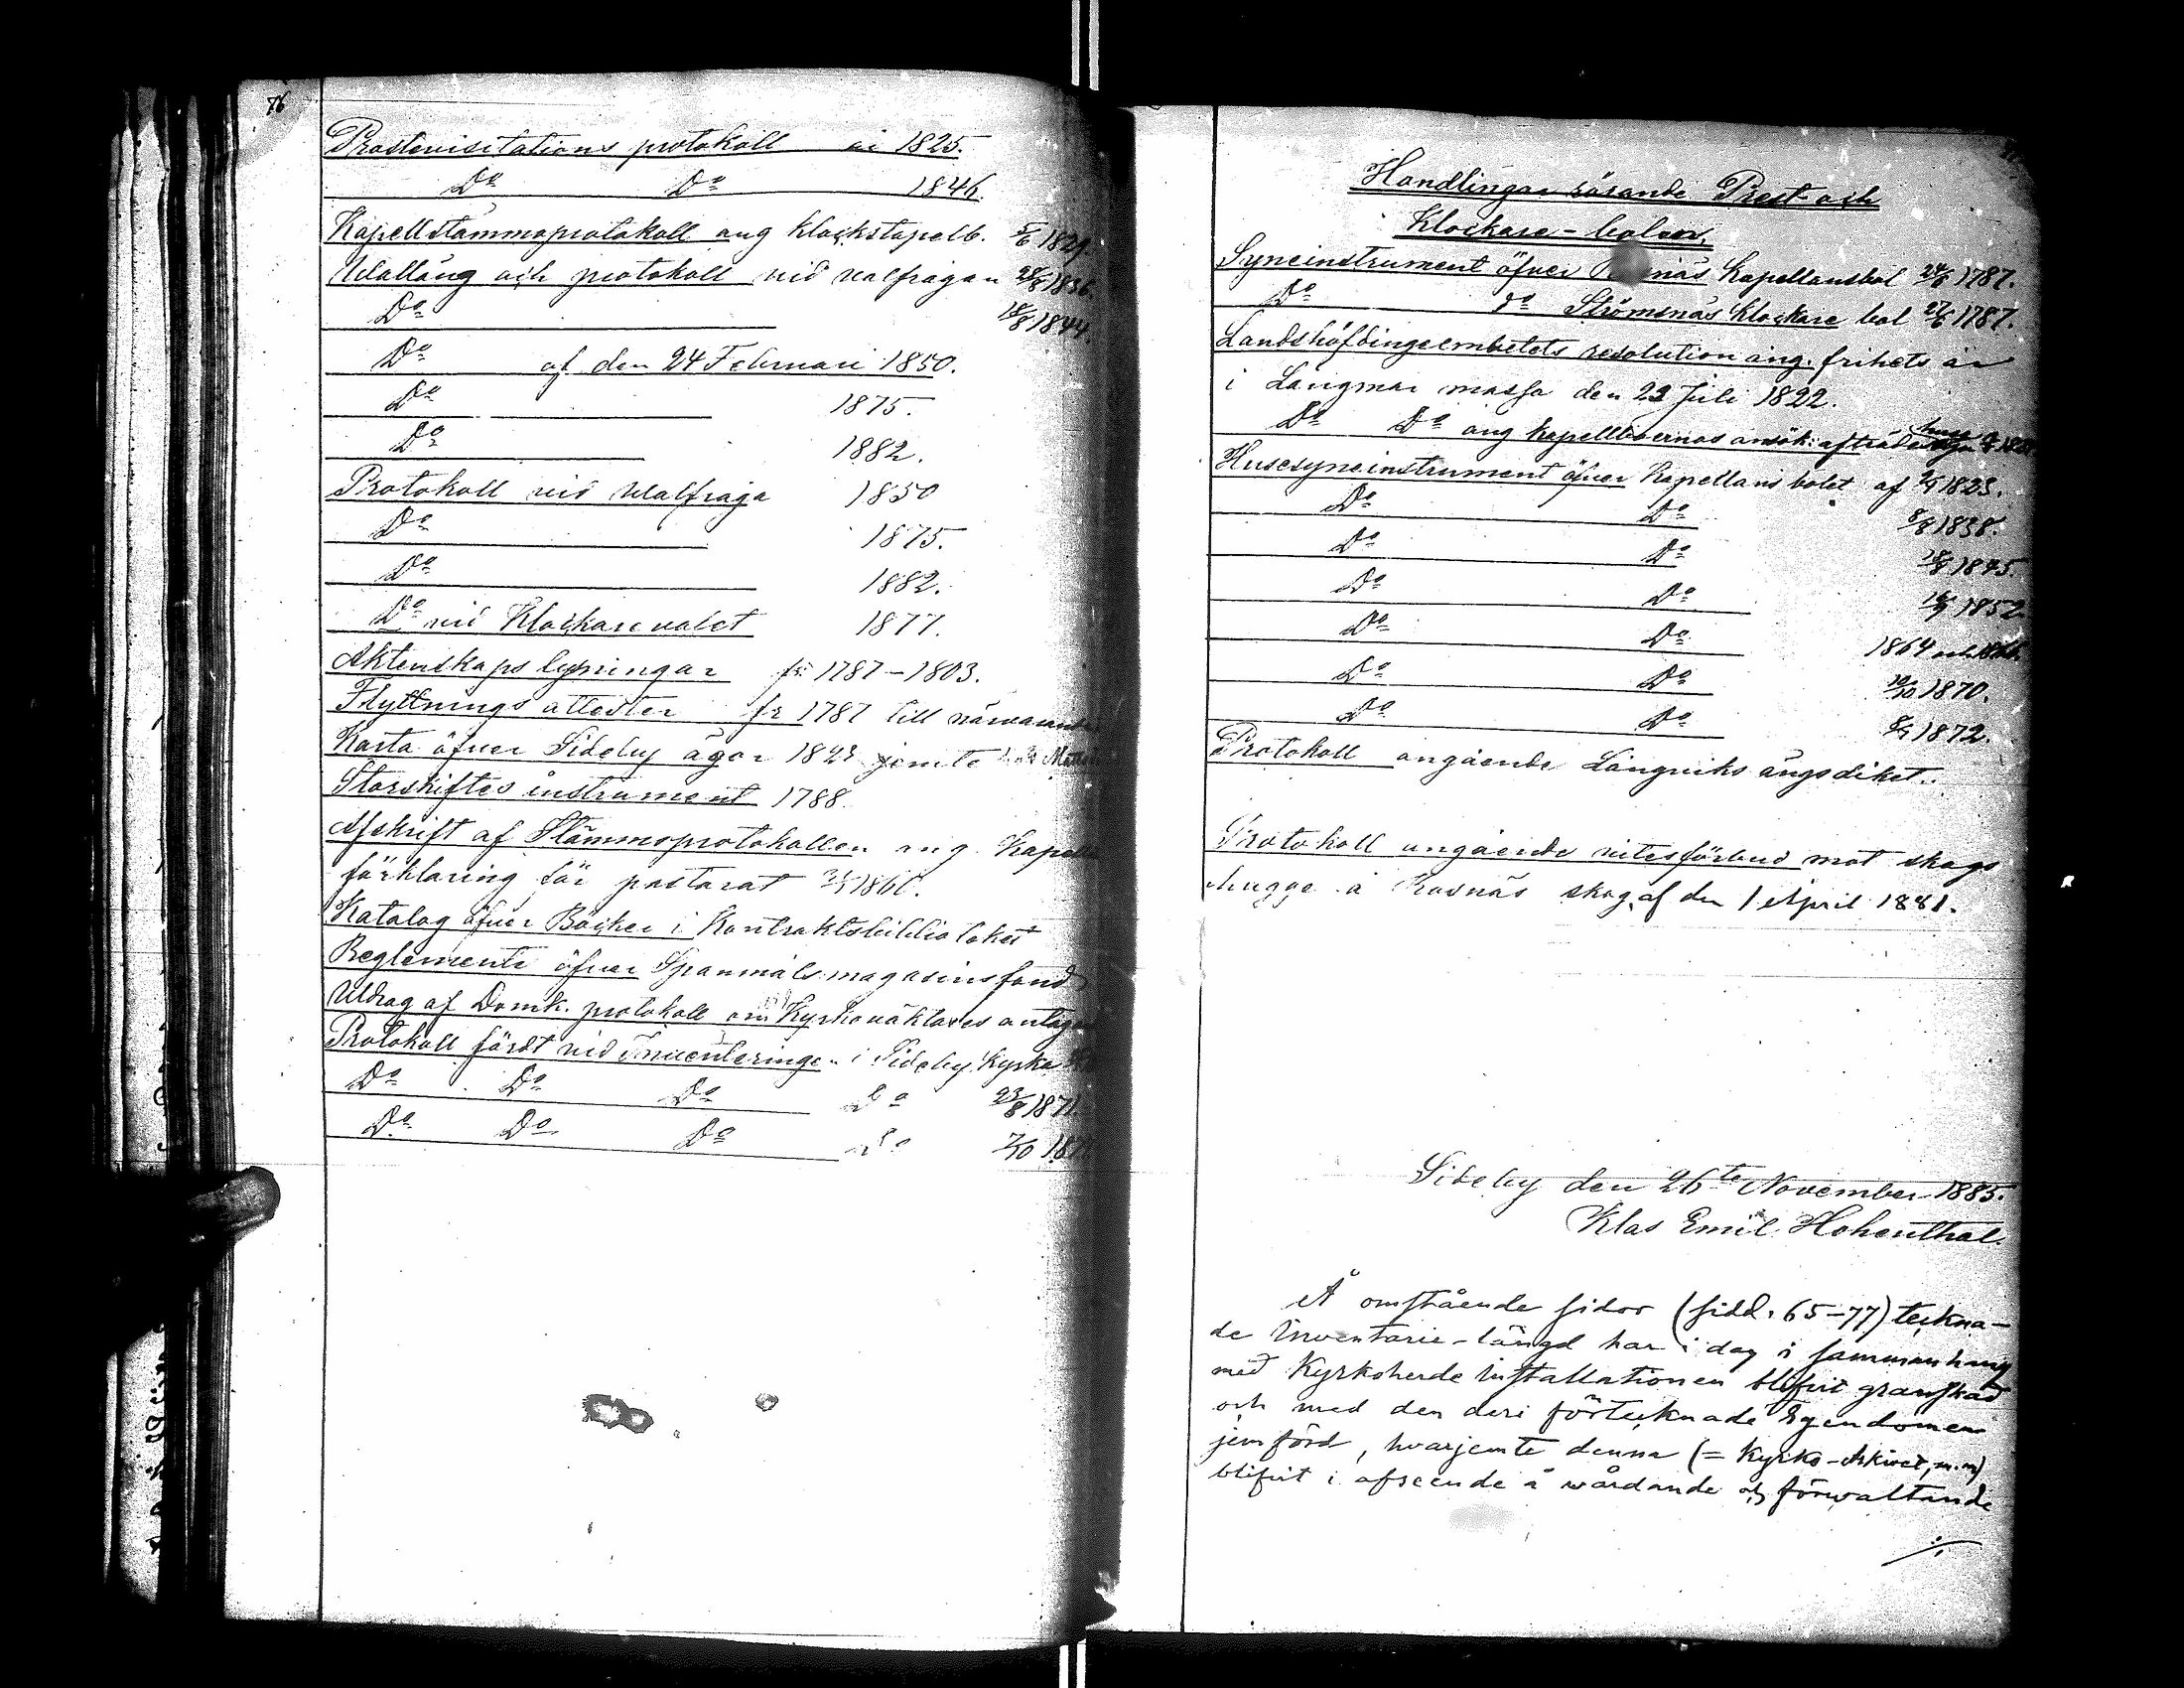 76
Prostevisitations protokoll å 1825.
Do Do 1846.
Kapellstämmoprotokoll ang klockstapelb. 5/6 1829.
Walläng och protokoll vid valfrågan 28/8 1836.
Do 18/8 1844.
Do af den 24 Februari 1850.
Do 1875.
Do 1882.
Protokoll vid Walfråga 1850
Do 1875.
Do 1882.
Do vid Klockarevalet 1877.
Äktenskaps lysningar fr. 1787-1803.
Flyttnings attester fr 1787 till närvarande
Karta öfver Sideby ägor 1823 jemte
Storskiftes instrument 1788.
Afskrift af Stämmoprotokollen ang. Kapell
förklaring för pastorat
Katalog öfver Böcker i Kontraktsbiblioteket
Reglemente öfver Spanmåls magasinsfond
Utdrag af Domk. protokoll om Kyrkovaktares antag
Protokoll fördt vid Inventeringen i Sideby Kyrka
Do Do Do Do 23/8 1871.
Do Do Do Do 7/10
Handlingar rörande Prest och
Klockare-bolen.
Syneinstrument öfver Kapellansbol 26/6 1787.
Do do Strömsnäs Klockare bol 27/6 1787.
Landshöfdingeembetets resolution ang. frihets år
i Långmar mossa den 23 Juli 1822.
Do Do ang kapellboernas ansök:
Husesyneinstrument öfver Kapellans bolet af 1823.
Do Do 8/8 1838.
Do Do 28/8 1845.
Do Do 1852
Do Do 1864 och 1866
Do Do 19/10 1870.
Do Do 1872.
Protokoll angående Långviks ängsdiket.
Protokoll angående vitesförbud mot skogs
hugge å Kasnäs skog af den 1 April 1881.
Sideby den 26te November 1885.
Klas Emil Hohenthal.
Å omstående sidor (sidd. 65-77) teckna-
de Inventarie-längd har i dag i sammanhang
med Kyrkoherde installationen blifvit granskad
och med den deri förtecknade Egendomen
jemförd, hvarjemte denna (= Kyrko-Arkivet, m.m)
blifvit i afseende å wårdande och förwaltande